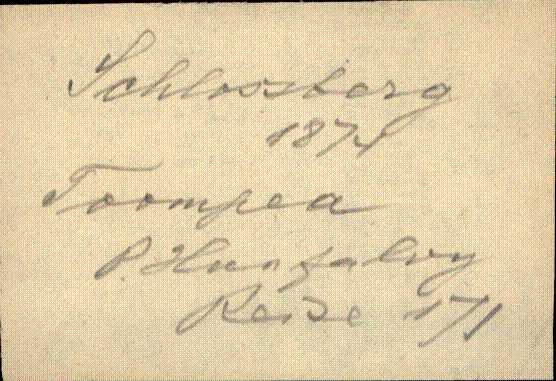 Schlossberg
1871
Toompea
P. Hunfalvy
Reise 171